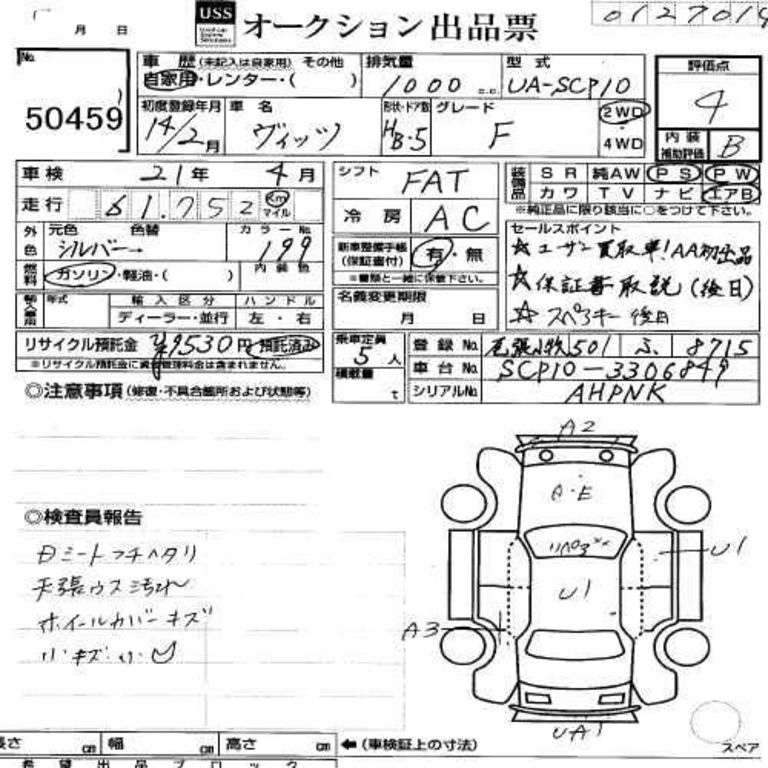 USS オークション出品票
月 日
0127019
No.
50459
車歴 (未記入は自家用) その他
自家用・レンター・( )
排気量
1000 c.c.
型式
UA-SCP10
評価点
4
内装補助評価 B
初度登録年月
14/2月
車名
ヴィッツ
形状・ドア数
HB・5
グレード
F
2WD
・
4WD
車検 21年 4月
走行 61,752 Km マイル
外色 元色 色替
シルバー→
カラーNo.
199
燃料 ガソリン・軽油・( )
内装色
輸入車用 年式 輸入区分 ハンドル
ディーラー・並行 左・右
リサイクル預託金 ¥9530円 預託済み
※リサイクル預託金に資金管理料金は含まれません。
シフト
FAT
冷房 AC
新車整備手帳
(保証書付) 有・無
※書類と一緒に保管下さい。
名義変更期限
月 日
乗車定員
5人
積載量
t
装備品 SR 純AW PS PW
カワ TV ナビ エアB
※純正品に限り該当に○をつけて下さい。
セールスポイント
☆ユーザー買取車!AA初出品
☆保証書取説(後日)
☆スペアキー後日
登録No. 尾張小牧501 ふ 8715
車台No. SCP10-3306849
シリアルNo. AHPNK
◎注意事項 (修復・不具合箇所および状態等)
◎検査員報告
天張ウス汚れ
ホイールカバーキズ
小キズ・小凹
A2
A・E
U1
U1
A3
UA1
スペア
長さ cm 幅 cm 高さ cm ←(車検証上の寸法)
希望出品ブロック